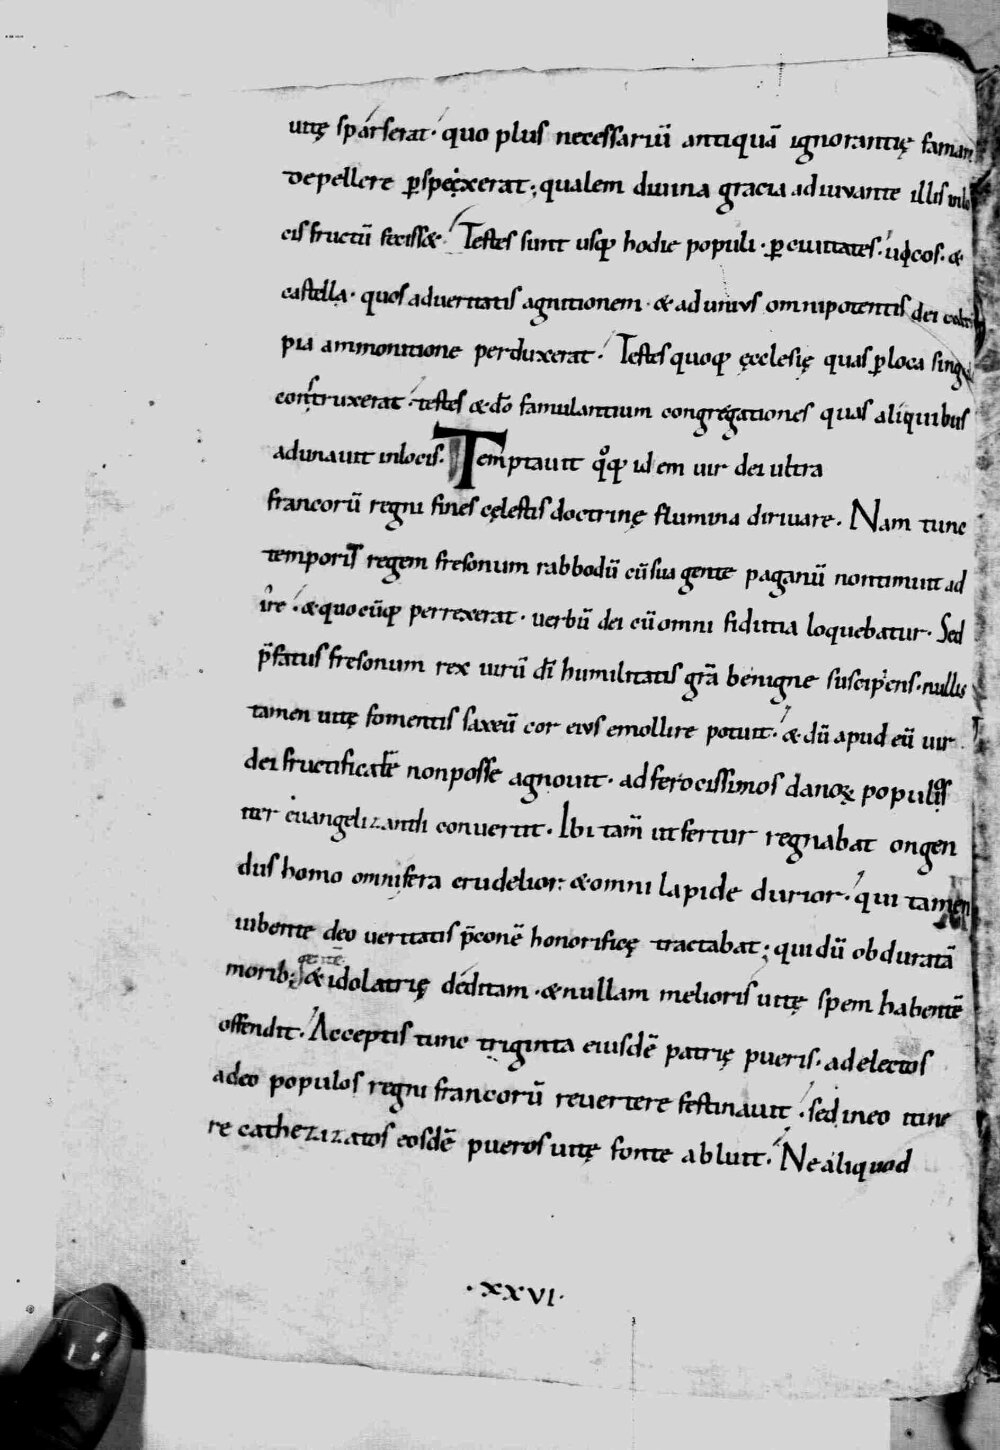 uitę sparserat· quo plus necessariū antiquā ignorantię famam
depellere ꝑspexerat; qualem diuina gracia adiuuante illis inlo
cis fructū fecisset· Testes sunt usq hodie populi· ꝑ ciuitates· uicos· &
castella· quos aduertatis agnitionem· & ad unius omnipotentis dei
pia ammonitione perduxerat· Testes quoq ęcclesię quas ꝑ loca
construxerat· testes & dō famulantium congregationes quas aliquibus
adunauit inlocis· Temptauit qͦq idem uir dei ultra
francorū regni fines cęlestis doctrinę flumina diriuare· Nam tunc
temporis regem fresonum rabbodū cū sua gente paganū nontimuit ad
ire· & quocūq perrexerat· uerbū dei cū omni fiditia loquebatur· Sed
p̄fatus fresonum rex uirū dī humilitatis grā benigne suscipiens· nullis
tamen uitę fomentis saxeū cor eius emollire potuit· & dū apud eū uir
dei fructificare nonposse agnouit· ad ferocissimos danoꝝ populos
iter euangelizandi conuertit· Ibi tam̄ ut fertur regnabat ongen
dus homo omnifera crudelior· & omni lapide durior· qui tamen
iubente deo ueritatis p̄conē honorificę tractabat; qui dū obduratā
morib; gentē & idolatrię deditam· & nullam melioris uitę spem habentē
offendit· Acceptis tunc triginta eiusdē patrię pueris· ad electos
a deo populos regni francorū reuertere festinauit· sed in eo itine
re cathezizatos eosdē pueros uitę fonte abluit· Ne aliquod
·xxvi·